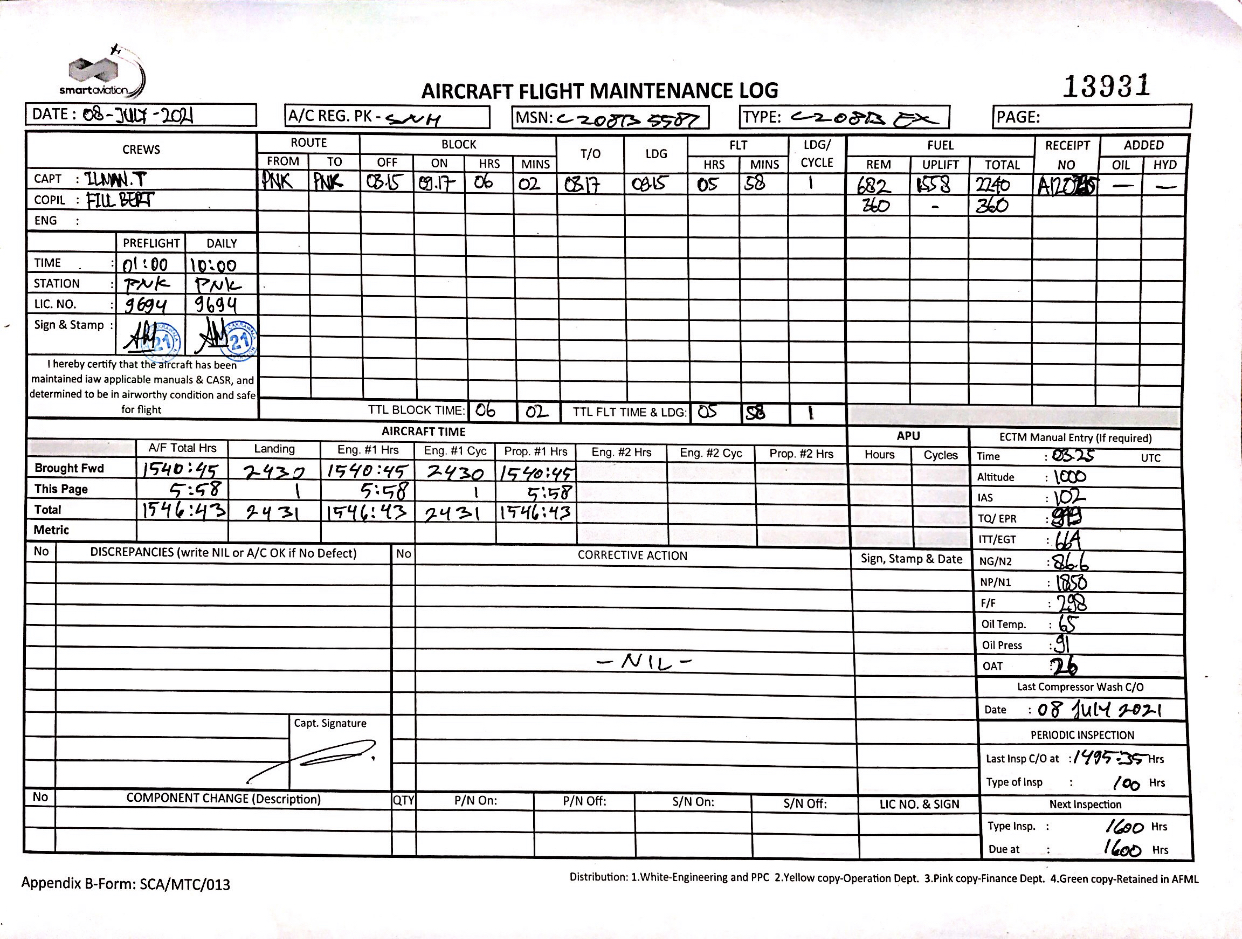 smartaviation
AIRCRAFT FLIGHT MAINTENANCE LOG
13931
DATE : 08-JULY-2021
A/C REG. PK - SNH
MSN: C208B 5587
TYPE: C208B EX
PAGE:
CREWS ROUTE BLOCK T/O LDG FLT LDG/ CYCLE FUEL RECEIPT NO ADDED
FROM TO OFF ON HRS MINS HRS MINS REM UPLIFT TOTAL OIL HYD
CAPT : ILMAN.T PNK PNK 03.15 09.17 06 02 03.17 09.15 05 58 1 682 1558 2240 — —
COPIL : FILLBERT 360 - 360
ENG :
PREFLIGHT DAILY
TIME : 01:00 10:00
STATION : PNK PNK
LIC. NO. : 9694 9694
Sign & Stamp : 21 21
I hereby certify that the aircraft has been
maintained iaw applicable manuals & CASR, and
determined to be in airworthy condition and safe
for flight
TTL BLOCK TIME: 06 02 TTL FLT TIME & LDG: 05 58 1
AIRCRAFT TIME APU ECTM Manual Entry (If required)
A/F Total Hrs Landing Eng. #1 Hrs Eng. #1 Cyc Prop. #1 Hrs Eng. #2 Hrs Eng. #2 Cyc Prop. #2 Hrs Hours Cycles
Brought Fwd 1540:45 2430 1540:45 2430 1540:45
This Page 5:58 1 5:58 1 5:58
Total 1546:43 2431 1546:43 2431 1546:43
Metric
Time : 03.25 UTC
Altitude : 1000
IAS : 102
TQ/ EPR :
ITT/EGT : 664
NG/N2 : 86.6
NP/N1 : 1850
F/F : 298
Oil Temp. : 65
Oil Press : 91
OAT : 26
No DISCREPANCIES (write NIL or A/C OK if No Defect) No CORRECTIVE ACTION Sign, Stamp & Date
- NIL -
Capt. Signature
Last Compressor Wash C/O
Date : 08 JULY 2021
PERIODIC INSPECTION
Last Insp C/O at : 1495:35 Hrs
Type of Insp : 100 Hrs
No COMPONENT CHANGE (Description) QTY P/N On: P/N Off: S/N On: S/N Off: LIC NO. & SIGN
Next Inspection
Type Insp. : 1600 Hrs
Due at : 1600 Hrs
Appendix B-Form: SCA/MTC/013
Distribution: 1.White-Engineering and PPC 2.Yellow copy-Operation Dept. 3.Pink copy-Finance Dept. 4.Green copy-Retained in AFML